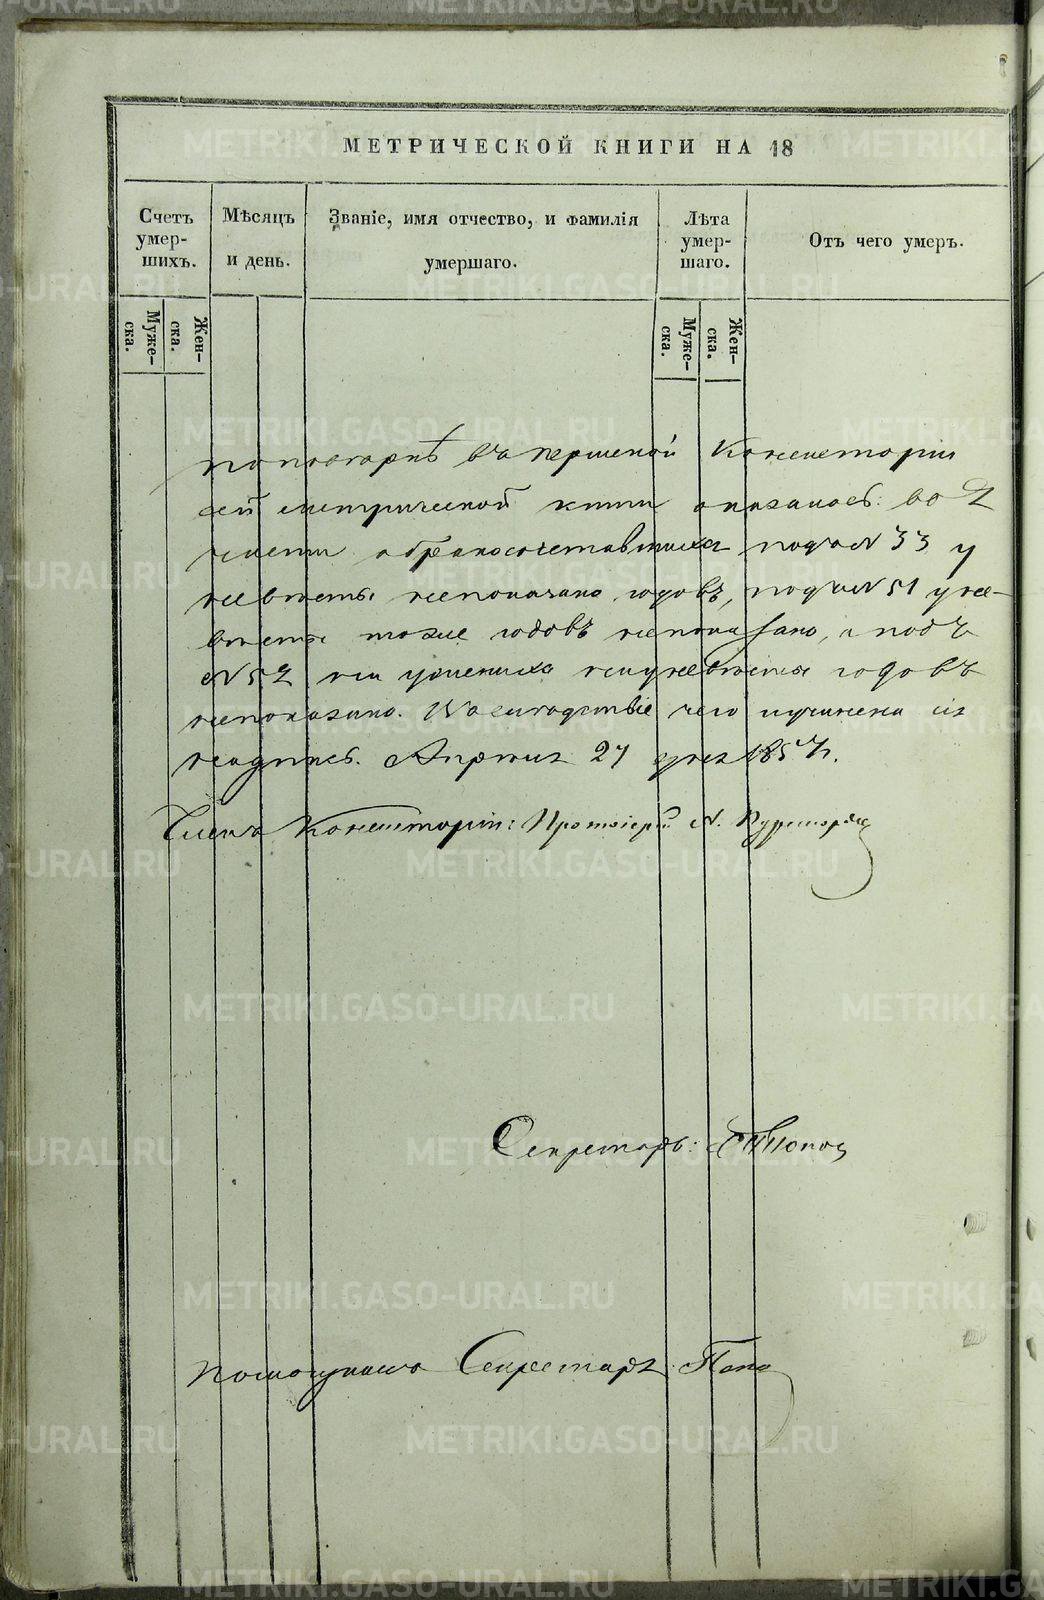 МЕТРИЧЕСКОЙ КНИГИ НА 18
Счетъ умер-шихъ.
Мѣсяцъ и день.
Званіе, имя отчество, и фамилія умершаго.
Лѣта умер-шаго.
Отъ чего умеръ.
Муже-ска.
Жен-ска.
Муже-ска.
Жен-ска.
по поверкѣ въ Пермской Консисторіи
сей метрической книги оказалось: во 2
части о бракосочетавшихся подъ N 33 у
невѣсты непоказано годовъ, подъ N 51 у не-
вѣсты тоже годовъ непоказано, и подъ
N 52 ни у жениха ни у невѣсты годовъ
непоказано. Въ слѣдствіе чего учинена сія
надпись. Апрѣля 27 дня 1857 г.
Членъ Консисторіи: Протоіерей
Секретарь: Попов
Помощникъ Секретаря: Попо
METRIKI.GASO-URAL.RU